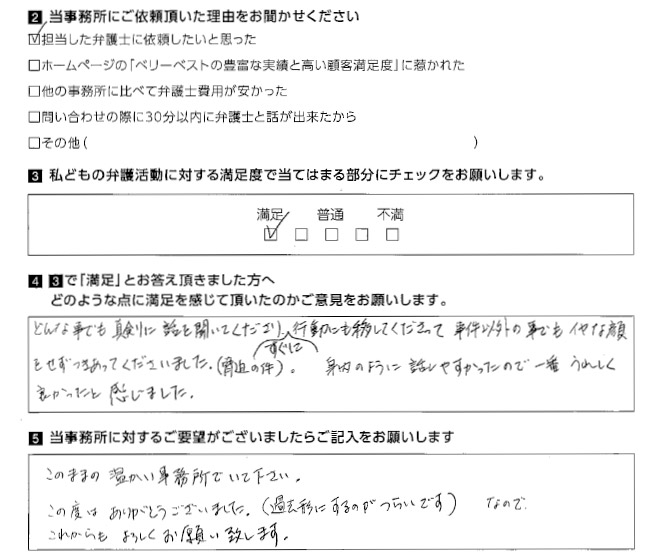 2 当事務所にご依頼頂いた理由をお聞かせください
☑担当した弁護士に依頼したいと思った
□ホームページの「ベリーベストの豊富な実績と高い顧客満足度」に惹かれた
□他の事務所に比べて弁護士費用が安かった
□問い合わせの際に30分以内に弁護士と話が出来たから
□その他( )
3 私どもの弁護活動に対する満足度で当てはまる部分にチェックをお願いします。
満足 普通 不満
☑ □ □ □ □
4 3で「満足」とお答え頂きました方へ
どのような点に満足を感じて頂いたのかご意見をお願いします。
どんな事でも真剣に話を聞いてくださり、行動にも移してくださって 事件以外の事でもイヤな顔
すぐに
をせずつきあってくださいました。(脅迫の件)。 身内のように話しやすかったので一番うれしく
良かったと感じました。
5 当事務所に対するご要望がございましたらご記入をお願いします
このままの温かい事務所でいて下さい。
この度はありがとうございました。(過去形にするのがつらいです) なので
これからもよろしくお願い致します。